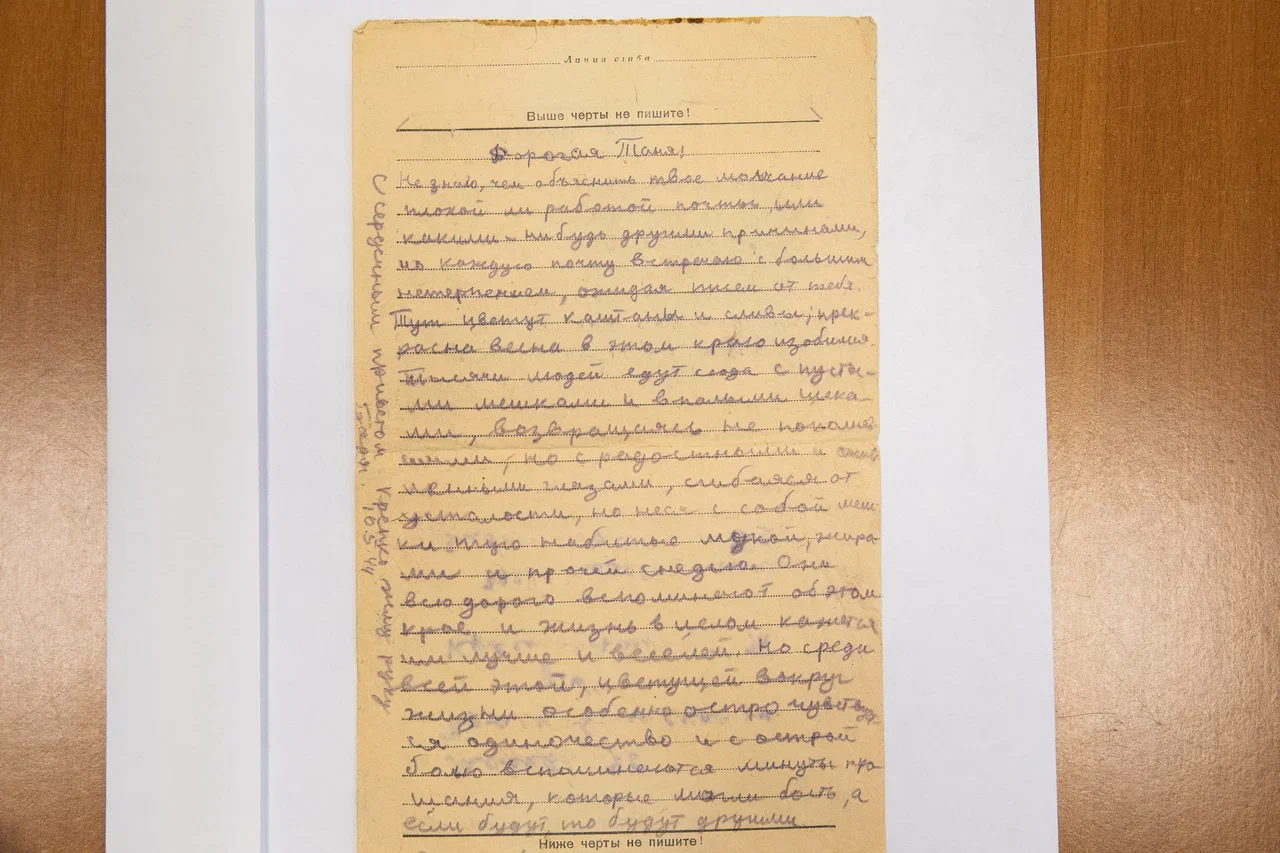 Линия сгиба
Выше черты не пишите!
Дорогая Таня!
Не знаю, чем объяснить твое молчание
плохой ли работой почты или
какими-нибудь другими причинами,
но каждую почту встречаю с большим
нетерпением, ожидая писем от тебя.
Тут цветут каштаны и сливы, прек-
расна весна в этом краю изобилия.
Тысячи людей едут сюда с пусты-
ми мешками и впалыми щека-
ми, возвращаясь не
но с радостными и
глазами, сгибаяся от
усталости, но неся с собой меш-
ки туго набитые мукой, жира-
ми и прочей снедью. Они
всю дорого вспоминают об этом
крае и жизнь в целом кажется
им лучше и веселей. Но среди
всей этой, цветущей вокруг
жизни особенно остро чувствуе
ся одиночество и с острой
болью вспоминаются минуты про
щания, которые могли быть, а
если будут, то будут другими
Ниже черты не пишите!
С сердечным приветом. Крепко жму руку
10.5.44